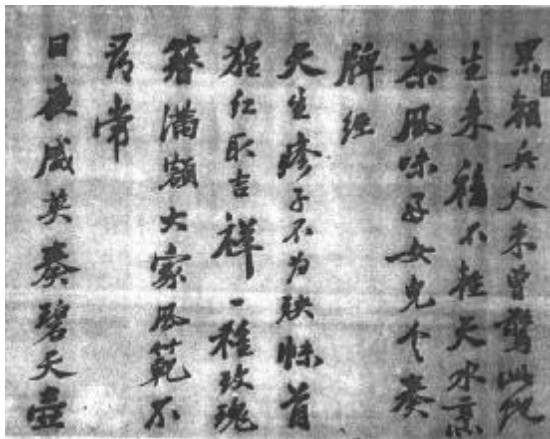 累朝兵火未曾驚此地
生来福不輕天水烹
茶風味好女兒奏
牌經
天生疹子不为殃首
猩红取吉祥一種玫瑰
簪滿額大家風範不
尋常
日夜咸英奏碧天壺